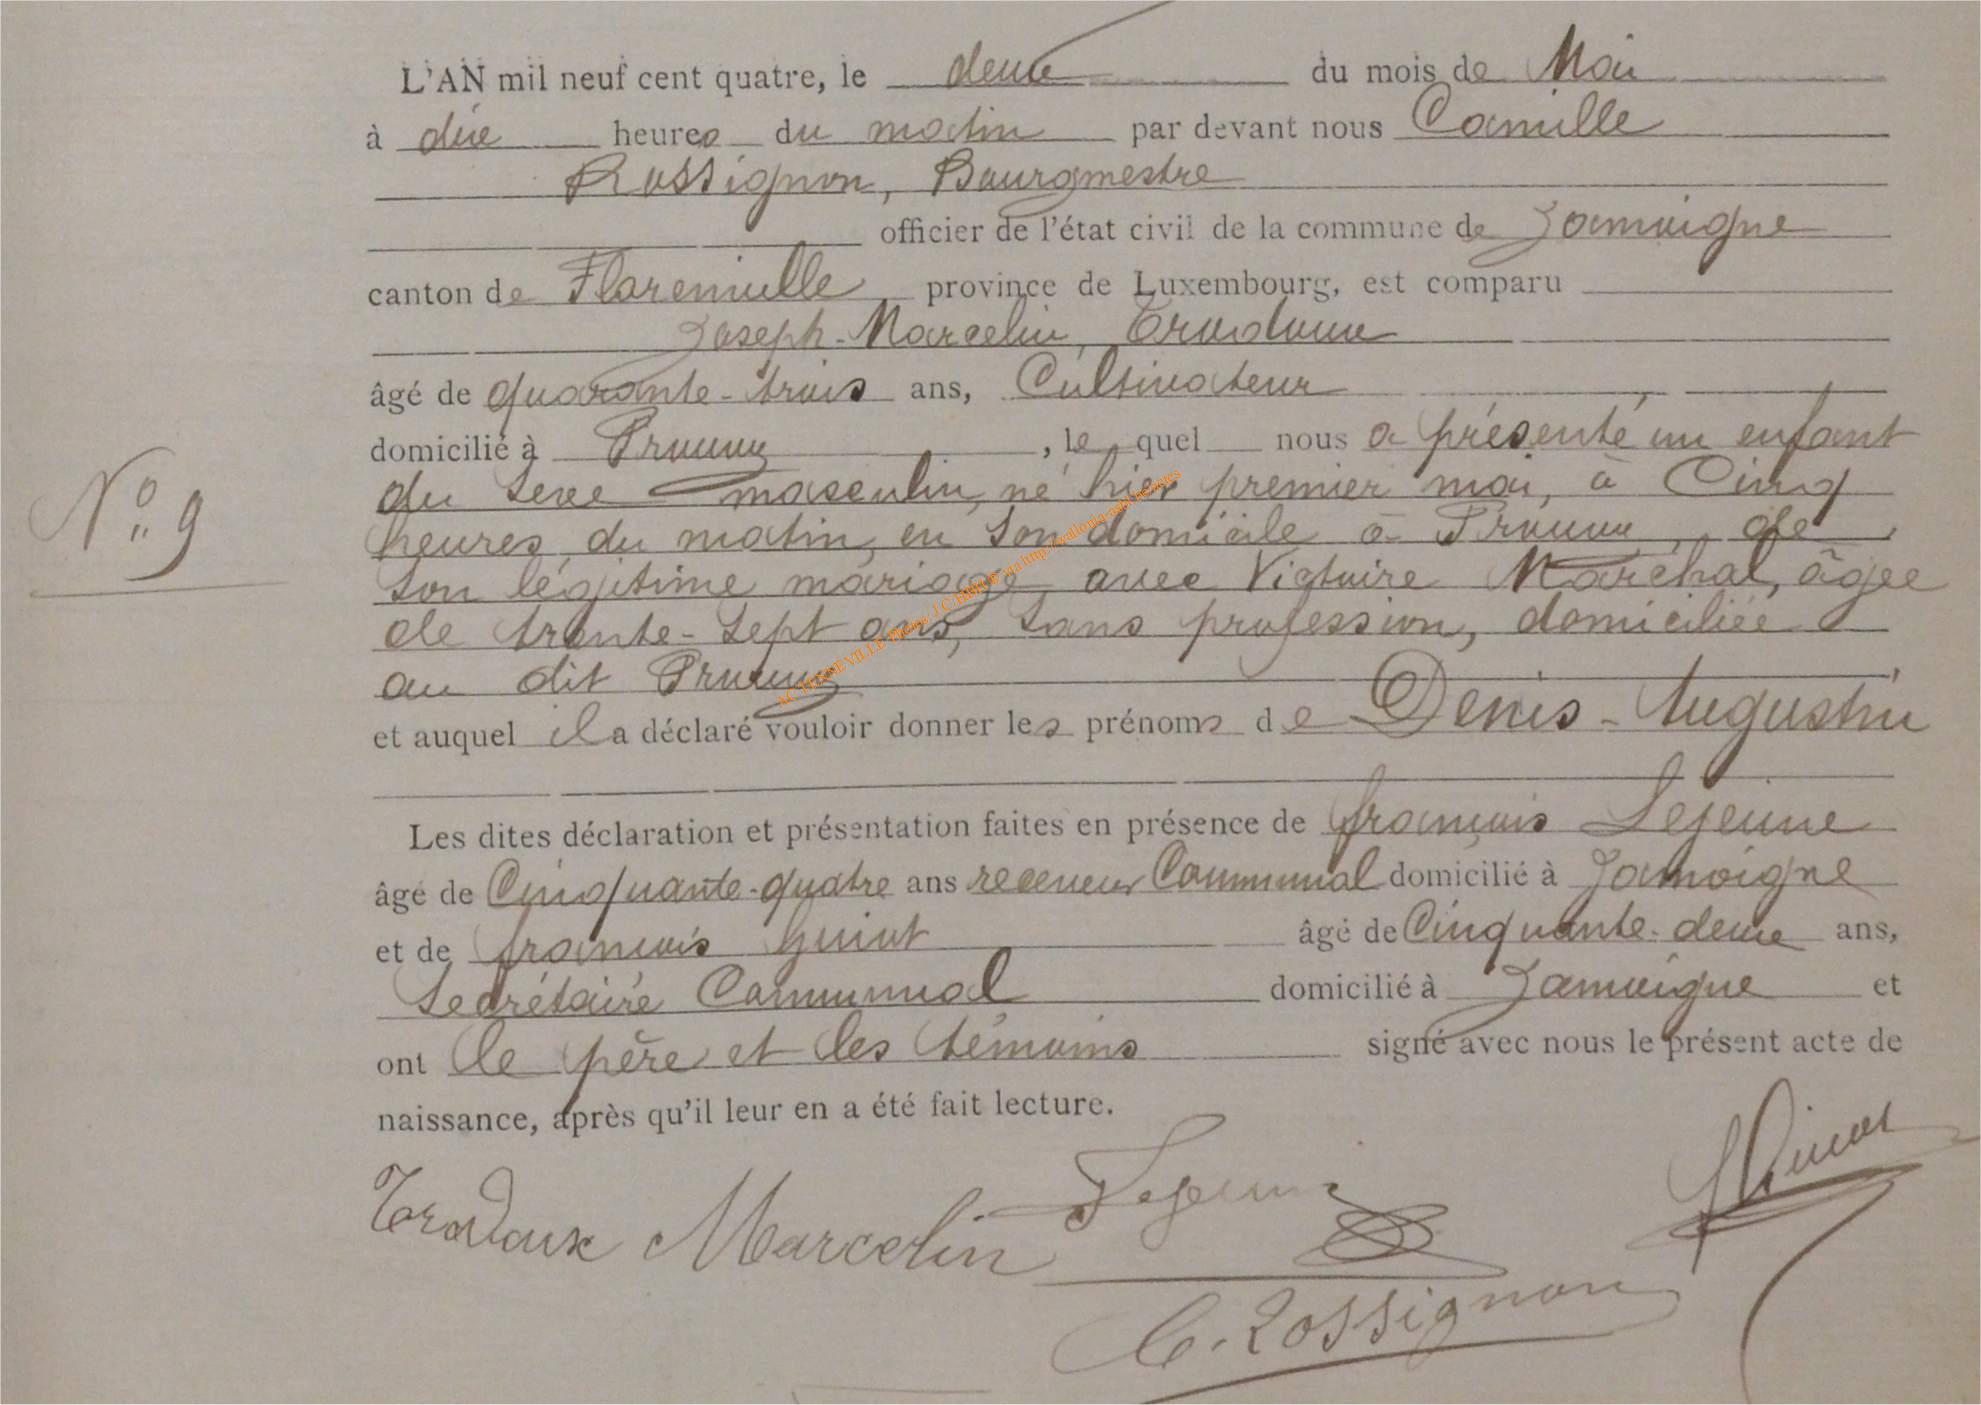 L'AN mil neuf cent quatre, le deux du mois de Mai
à dix heures du matin par devant nous Camille
Rossignon, Bourgmestre
officier de l'état civil de la commune de Jamoigne
canton de Florenville province de Luxembourg, est comparu
Joseph-Marcelin
âgé de quarante-trois ans, Cultivateur
domicilié à Prouvy, le quel nous a présenté un enfant
N° 9
du sexe masculin, né hier premier mai, à Cinq
heures du matin, en son domicile à Prouvy, de
son légitime mariage avec Victoire Maréchal, âgée
de trente-sept ans, sans profession, domiciliée
au dit Prouvy
et auquel il a déclaré vouloir donner les prénoms de Denis-Augustin
Les dites déclaration et présentation faites en présence de françois Lejeune
âgé de Cinquante-quatre ans receveur Communal domicilié à Jamoigne
et de françois âgé de Cinquante-deux ans,
Secrétaire Communal domicilié à Jamoigne et
ont le père et les témoins signé avec nous le présent acte de
naissance, après qu'il leur en a été fait lecture.
Lejeune
Marcelin
C. Rossignon